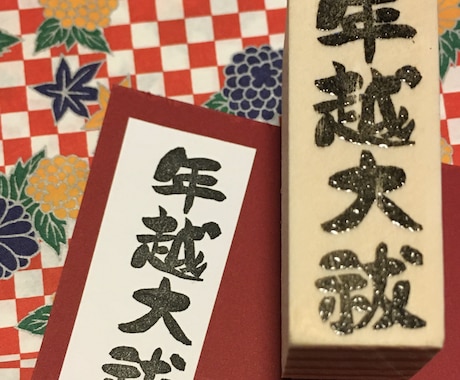 年越大祓
年越大祓